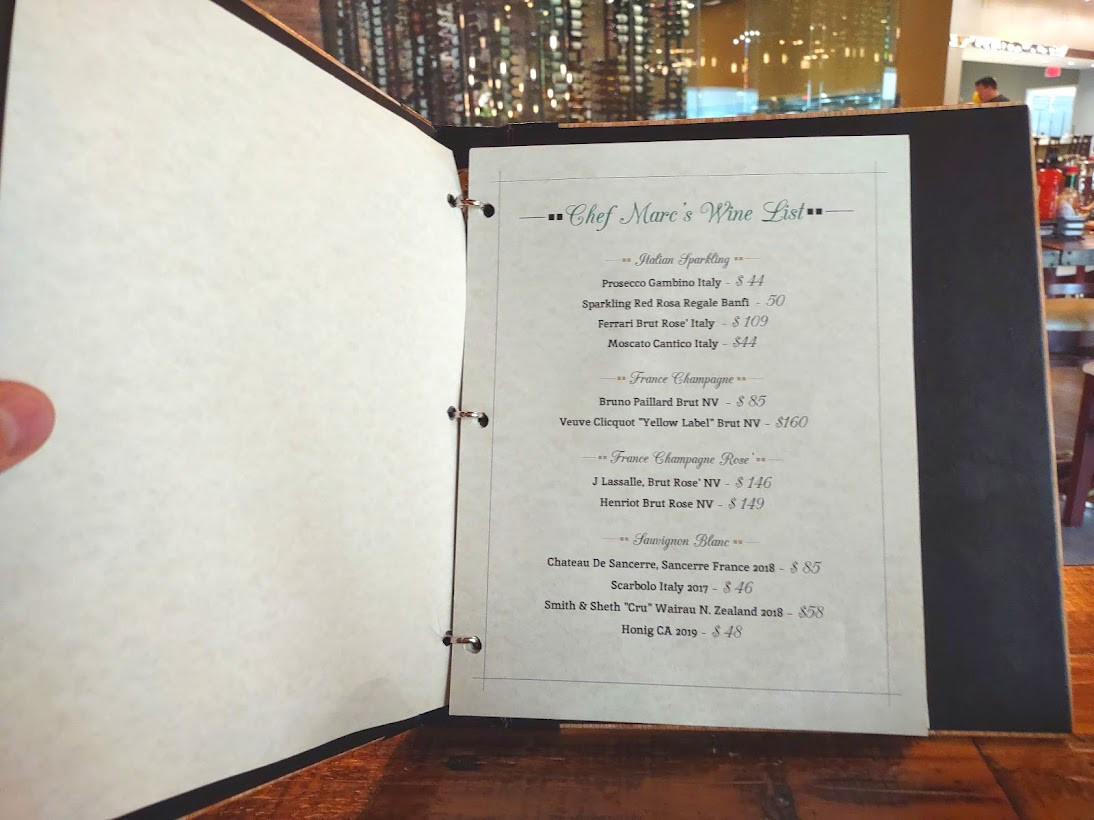 Chef Marc's Wine List
Italian Sparkling
Prosecco Gambino Italy - $ 44
Sparkling Red Rosa Regale Banfi - 50
Ferrari Brut Rose' Italy - $ 109
Moscato Cantico Italy - $44
France Champagne
Bruno Paillard Brut NV - $ 85
Veuve Clicquot "Yellow Label" Brut NV - $160
France Champagne Rose'
J Lassalle, Brut Rose' NV - $ 146
Henriot Brut Rose NV - $ 149
Sauvignon Blanc
Chateau De Sancerre, Sancerre France 2018 - $ 85
Scarbolo Italy 2017 - $ 46
Smith & Sheth "Cru" Wairau N. Zealand 2018 - $58
Honig CA 2019 - $ 48